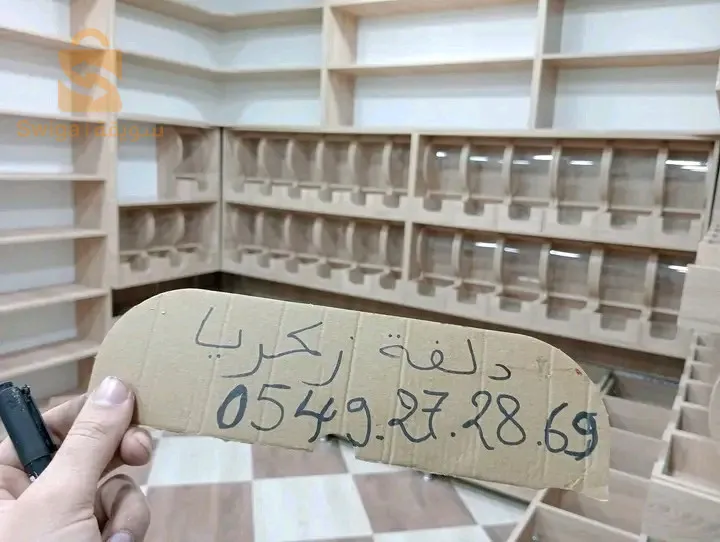 Souqa سوقة
دلفة زكريا
0549.27.28.69